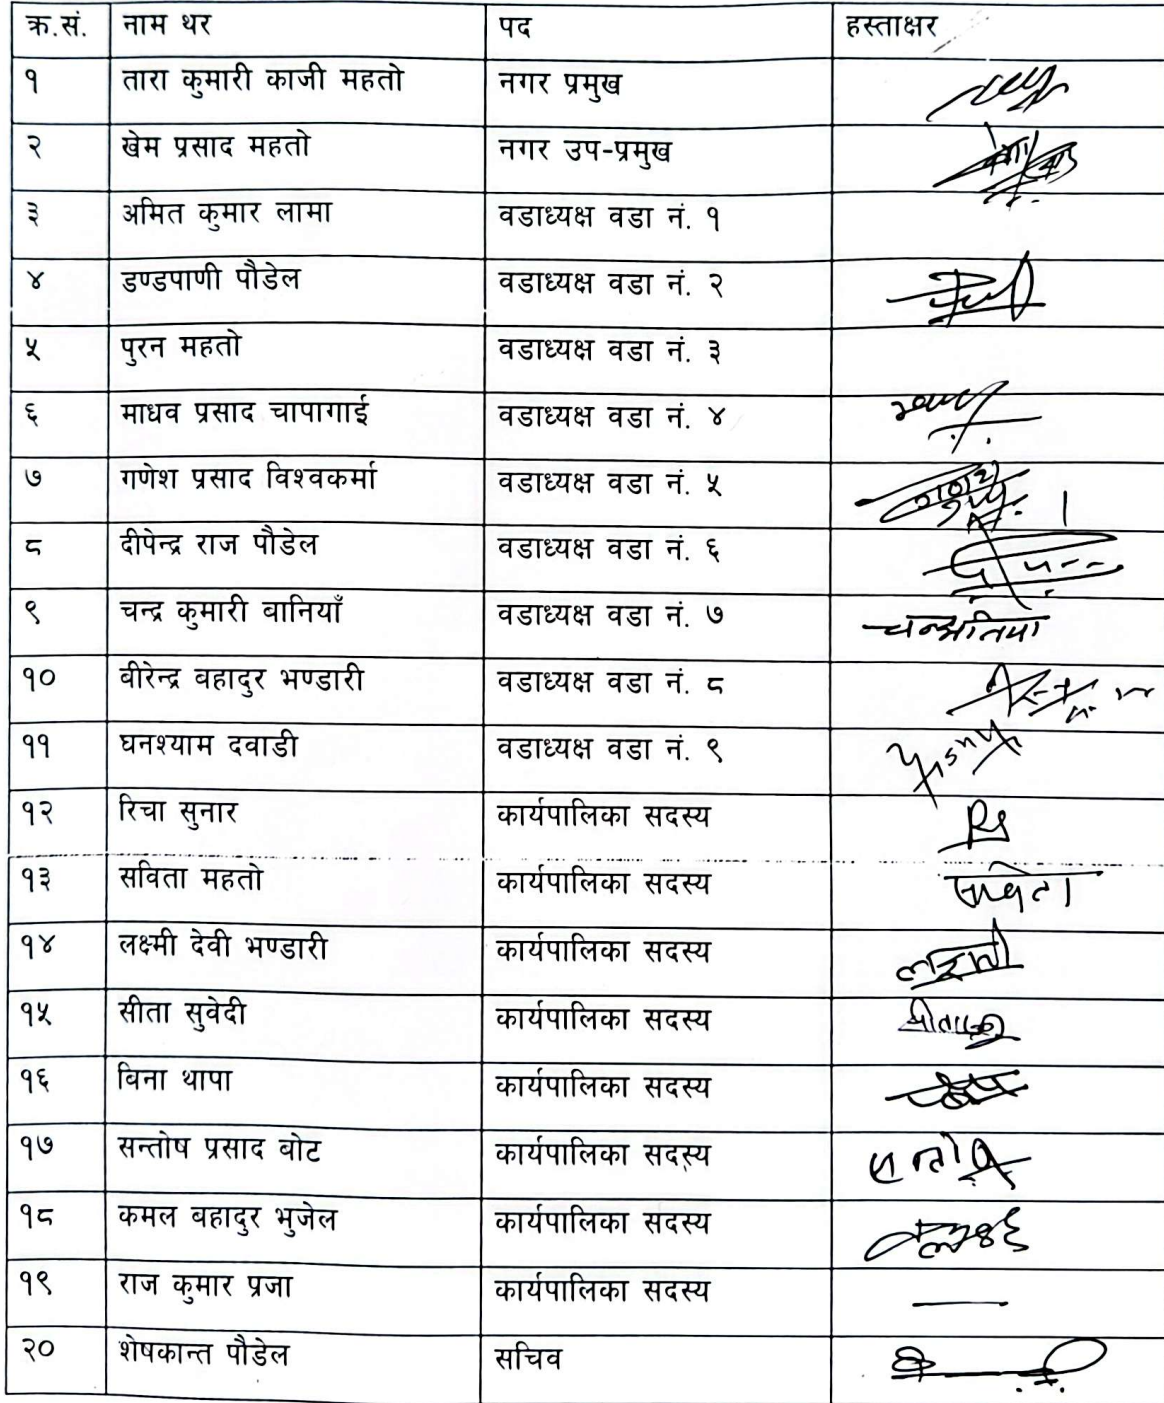 क्र.सं. नाम थर पद हस्ताक्षर
१ तारा कुमारी काजी महतो नगर प्रमुख
२ खेम प्रसाद महतो नगर उप-प्रमुख
३ अमित कुमार लामा वडाध्यक्ष वडा नं. १
४ डण्डपाणी पौडेल वडाध्यक्ष वडा नं. २
५ पुरन महतो वडाध्यक्ष वडा नं. ३
६ माधव प्रसाद चापागाई वडाध्यक्ष वडा नं. ४
७ गणेश प्रसाद विश्वकर्मा वडाध्यक्ष वडा नं. ५
८ दीपेन्द्र राज पौडेल वडाध्यक्ष वडा नं. ६
९ चन्द्र कुमारी बानियाँ वडाध्यक्ष वडा नं. ७
१० बीरेन्द्र बहादुर भण्डारी वडाध्यक्ष वडा नं. ८
११ घनश्याम दवाडी वडाध्यक्ष वडा नं. ९
१२ रिचा सुनार कार्यपालिका सदस्य
१३ सविता महतो कार्यपालिका सदस्य सविता
१४ लक्ष्मी देवी भण्डारी कार्यपालिका सदस्य
१५ सीता सुवेदी कार्यपालिका सदस्य
१६ बिना थापा कार्यपालिका सदस्य
१७ सन्तोष प्रसाद बोट कार्यपालिका सदस्य सन्तोष
१८ कमल बहादुर भुजेल कार्यपालिका सदस्य
१९ राज कुमार प्रजा कार्यपालिका सदस्य —
२० शेषकान्त पौडेल सचिव